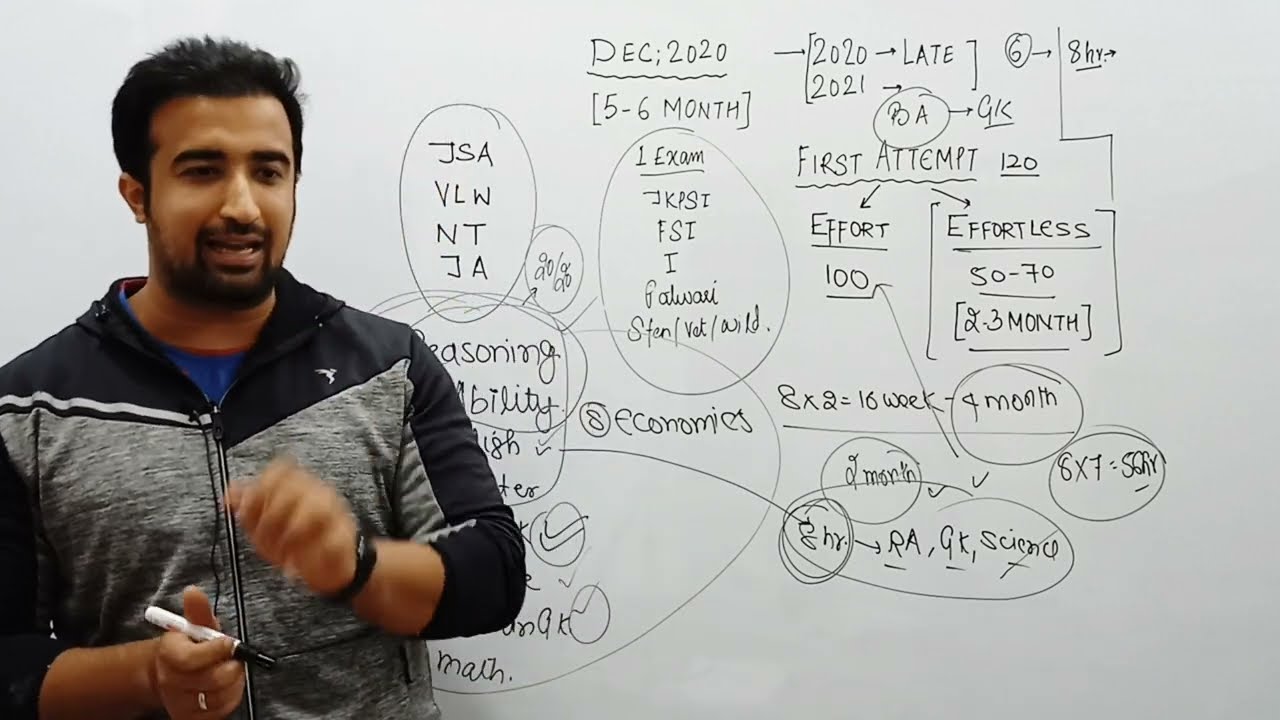 DEC; 2020
[5-6 MONTH]
→ [2020 → LATE]
2021 →
6 → 8hr. →
BA → GK
FIRST ATTEMPT 120
EFFORT
100
EFFORTLESS
50-70
[2-3 MONTH]
JSA
VLW
NT
JA
20/20
1 Exam
JKPSI
FSI
I
Patwari
Sten/Vet/Wild.
Reasoning
Ability.
8 economics
8X2=16 week - 4 month
2 month
8X7=56hr
8hr. → RA, GK, Science
GK
math.